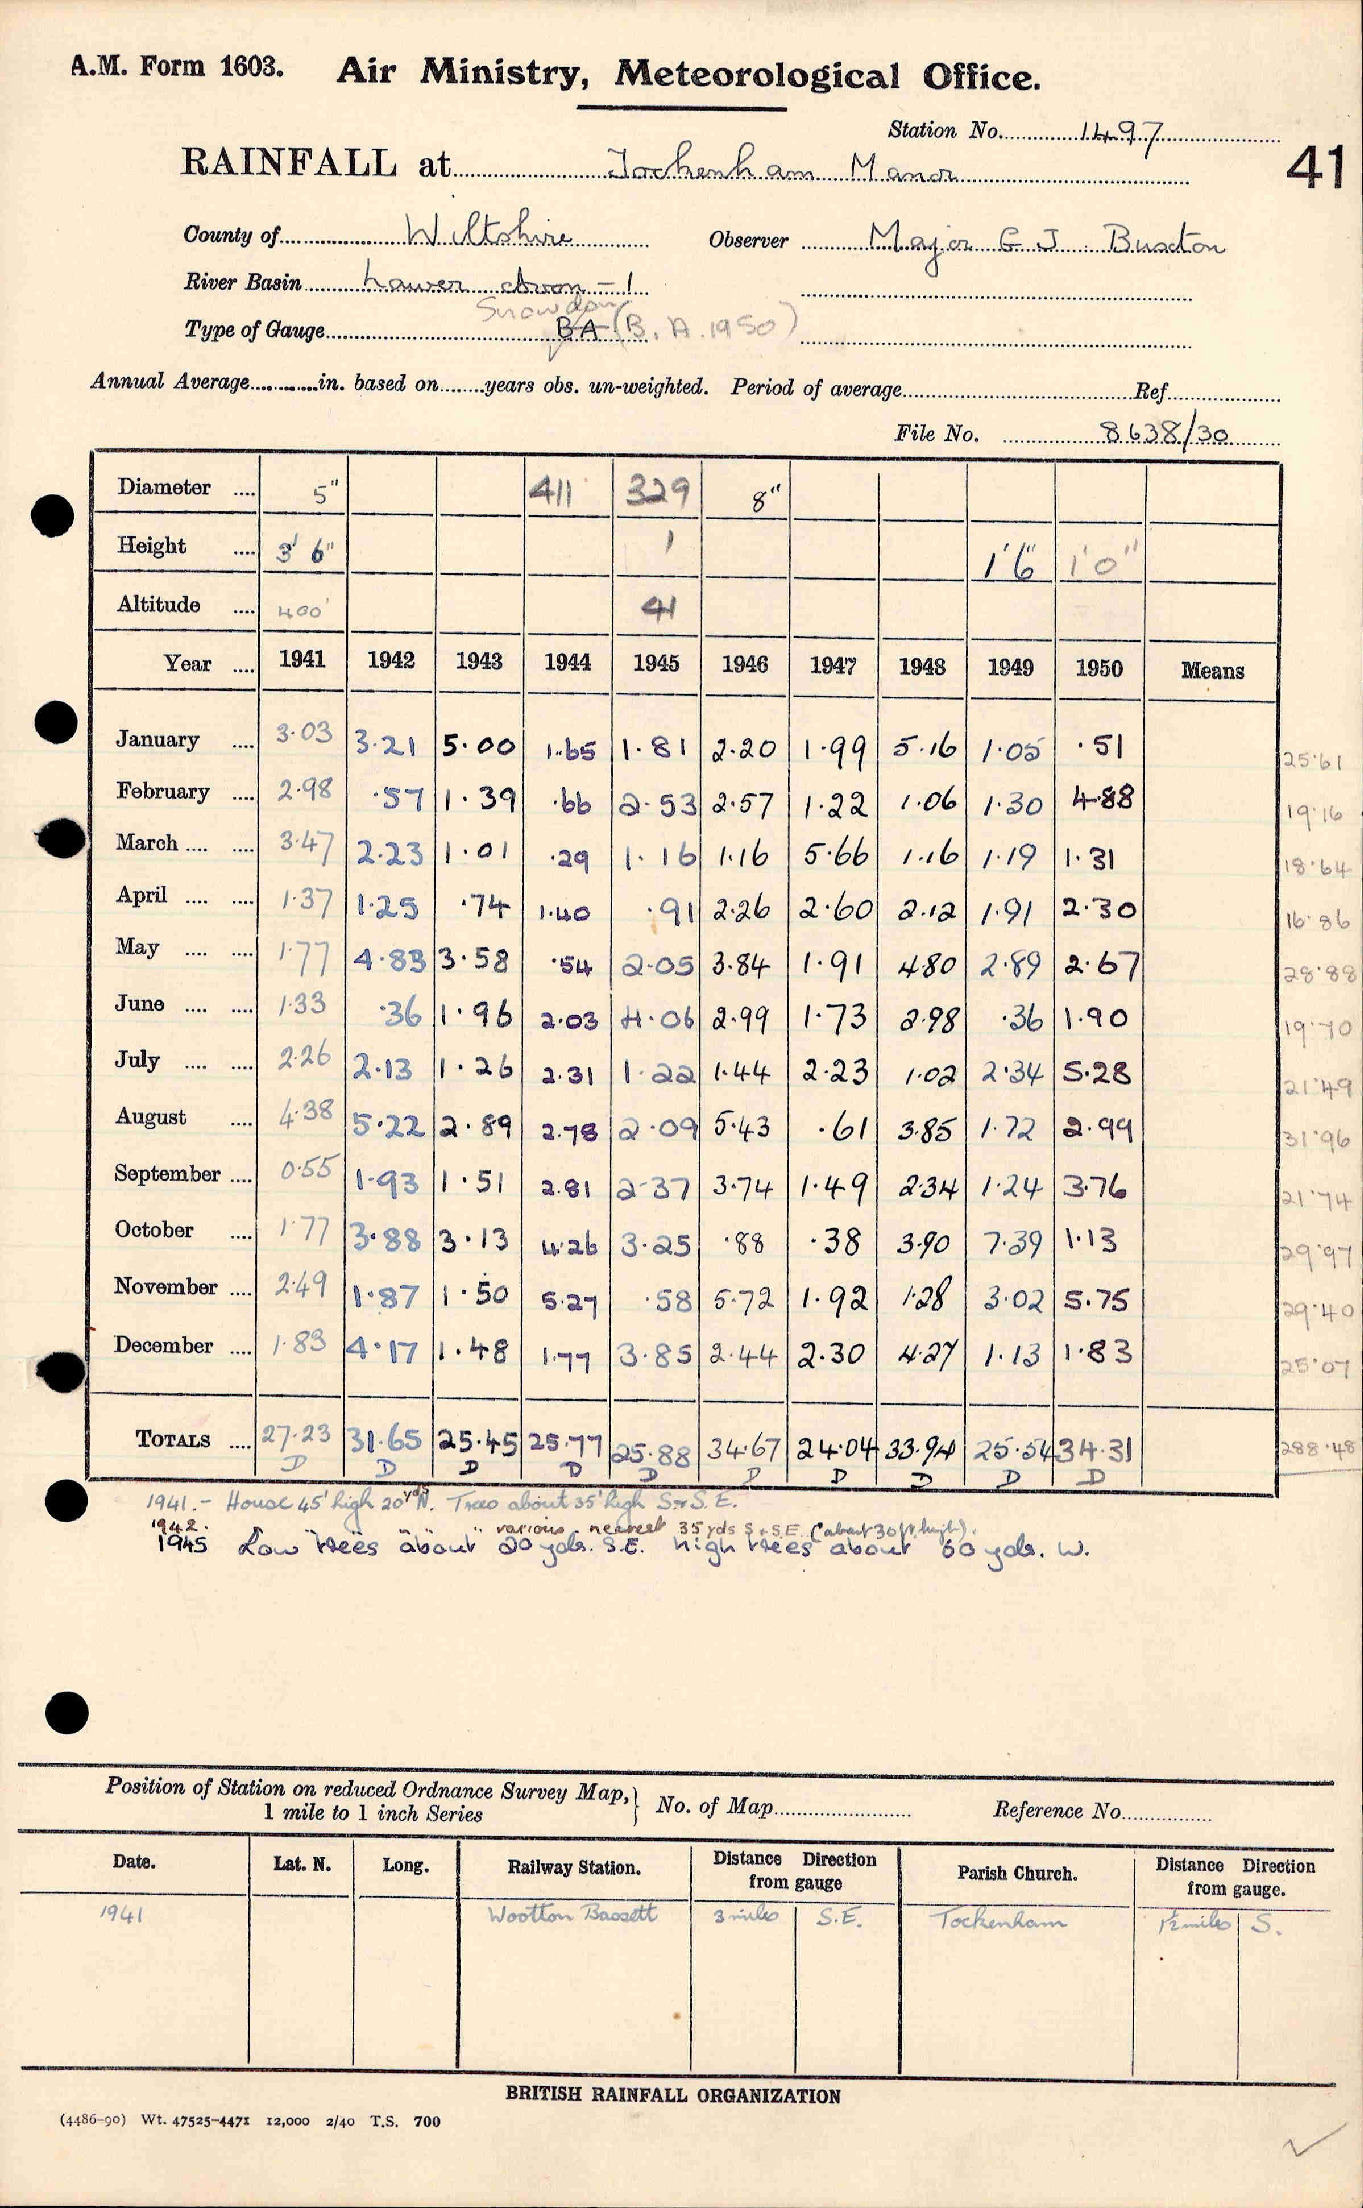 A.M. Form 1603. Air Ministry, Meteorological Office.
Station No. 1497
41
RAINFALL at Tockenham Manor
County of Wiltshire Observer Major G J Buxton
River Basin Lower Avon - 1
Snowdon
Type of Gauge BA (B.A. 1950)
Annual Average in. based on years obs. un-weighted. Period of average Ref
File No. 8638/30
Diameter 5" 411 329 8"
Height 3' 6" 1 1'6" 1'0"
Altitude 400' 41
Year 1941 1942 1943 1944 1945 1946 1947 1948 1949 1950 Means
January 3.03 3.21 5.00 1.65 1.81 2.20 1.99 5.16 1.05 .51 25.61
February 2.98 .57 1.39 .66 2.53 2.57 1.22 1.06 1.30 4.88 19.16
March 3.47 2.23 1.01 .29 1.16 1.16 5.66 1.16 1.19 1.31 18.64
April 1.37 1.25 .74 1.40 .91 2.26 2.60 2.12 1.91 2.30 16.86
May 1.77 4.83 3.58 .54 2.05 3.84 1.91 4.80 2.89 2.67 28.88
June 1.33 .36 1.96 2.03 4.06 2.99 1.73 2.98 .36 1.90 19.70
July 2.26 2.13 1.26 2.31 1.22 1.44 2.23 1.02 2.34 5.28 21.49
August 4.38 5.22 2.89 2.78 2.09 5.43 .61 3.85 1.72 2.99 31.96
September 0.55 1.93 1.51 2.81 2.37 3.74 1.49 2.34 1.24 3.76 21.74
October 1.77 3.88 3.13 4.26 3.25 .88 .38 3.90 7.39 1.13 29.97
November 2.49 1.87 1.50 5.27 .58 5.72 1.92 1.28 3.02 5.75 29.40
December 1.83 4.17 1.48 1.77 3.85 2.44 2.30 4.27 1.13 1.83 25.07
TOTALS 27.23 31.65 25.45 25.77 25.88 34.67 24.04 33.94 25.54 34.31 288.48
D D D D D D D D D D
1941.- House 45' high 20 yds N. Trees about 35' high S & S.E.
1942. " " " " various - nearest 35 yds S & S.E. (about 30 ft high).
1945 Low trees about 20 yds. S.E. high trees about 60 yds. W.
Position of Station on reduced Ordnance Survey Map, 1 mile to 1 inch Series } No. of Map Reference No.
Date. Lat. N. Long. Railway Station. Distance Direction from gauge Parish Church. Distance Direction from gauge.
1941 Wootton Bassett 3 miles S.E. Tockenham 1½ miles S.
BRITISH RAINFALL ORGANIZATION
(4486-90) Wt. 47525-4471 12,000 2/40 T.S. 700